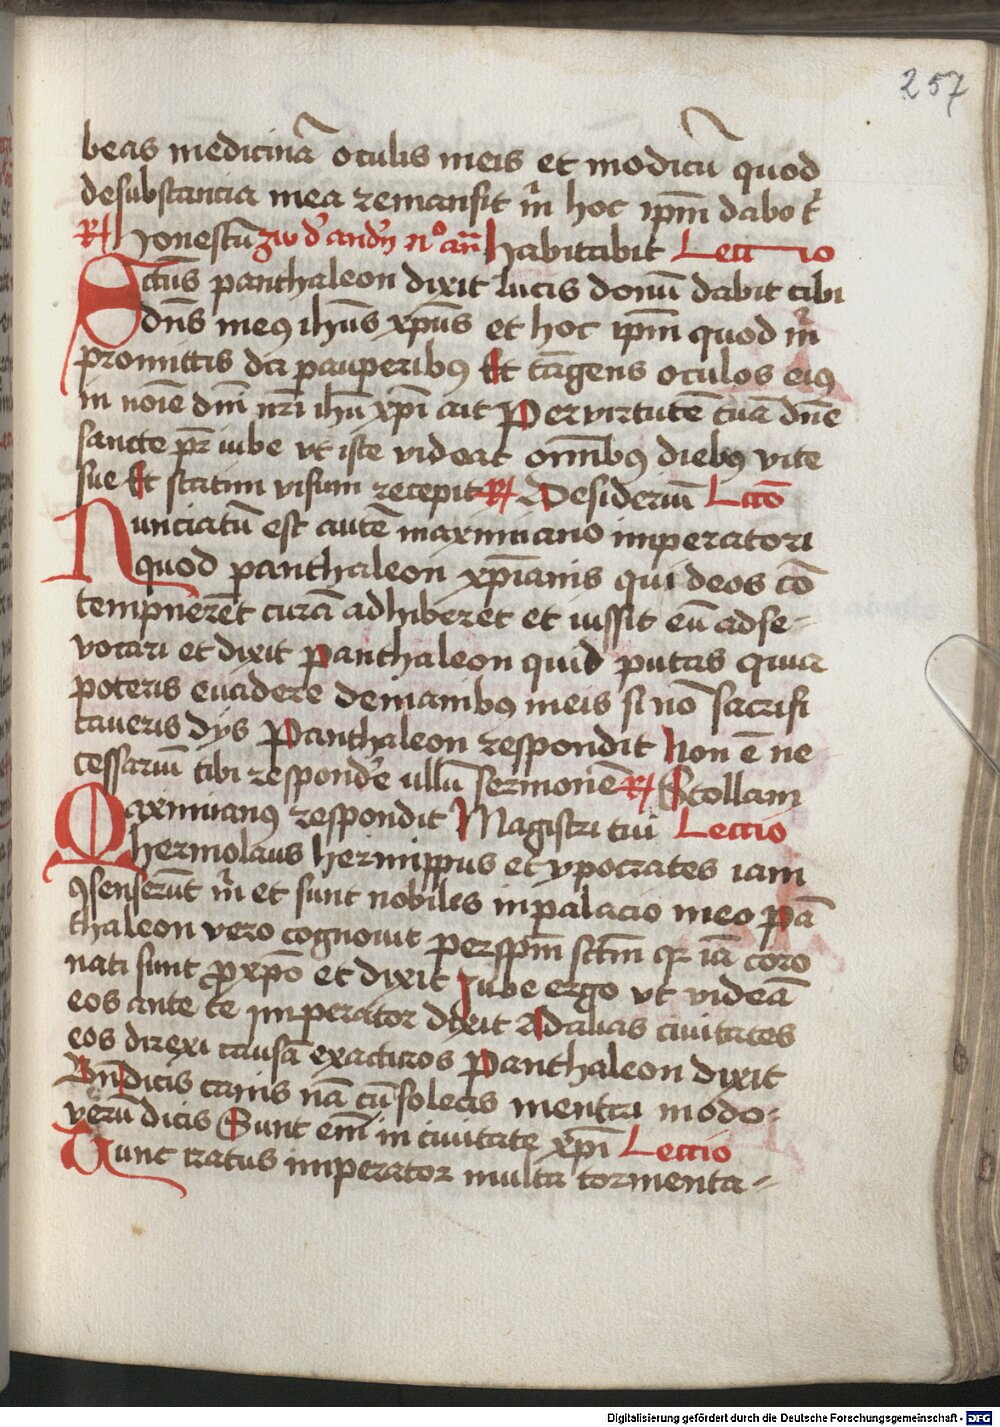 257
beas medicinā oculis meis et modicū quod
desubstancia mea remansit m̄ hoc ipm̄ dabo t̄
R Honestū habitabit Lectio
Sctūs panthaleon dixit lucis donū dabit tibi
dn̄s meꝰ ihūs xp̄us et hoc ipm̄ quod m̄
promittis da pauperibꝰ Et tāgens oculos eiꝰ
in noīe dn̄i nr̄i ihū xp̄i ait Per virtutē tuā dn̄e
sancte pr̄ iube vt iste videat om̄ibꝰ diebꝰ vite
sue Et statim visum recepit R Desideriū Lcō
Nunciatū est autē maximiano imperatori
quod panthaleon xp̄ianis qui deos cō
tempnerēt curā adhiberet et iussit eū adse-
vocari et dixit Panthaleon quid putas quia
poteris euadere demanibꝰ meis si nō sacrifi
caueris dys Panthaleon respondit Non ē ne
cessariū tibi respondē ullū sermonē R Extollam
Maximianꝰ respondit Magistri tui Lectio
hermolaus hermippus et ypocrates iam
ꝯsenserūt m̄ et sunt nobiles inpalacio meo Pā
thaleon vero cognouit perspm̄ sctm̄ qr iā coro
nati sunt ꝓ xpō et dixit Iube ergo vt videā
eos ante te imperator dixit Ad alias ciuitates
eos direxi causā exacturos Panthaleon dixit
Bn̄ dicis canis nā cū soleas mentiri modo-
verū dicis Sunt em̄ in ciuitate xp̄i Lectio
Tunc iratus imperator multa tormenta-
Digitalisierung gefördert durch die Deutsche Forschungsgemeinschaft - DFG